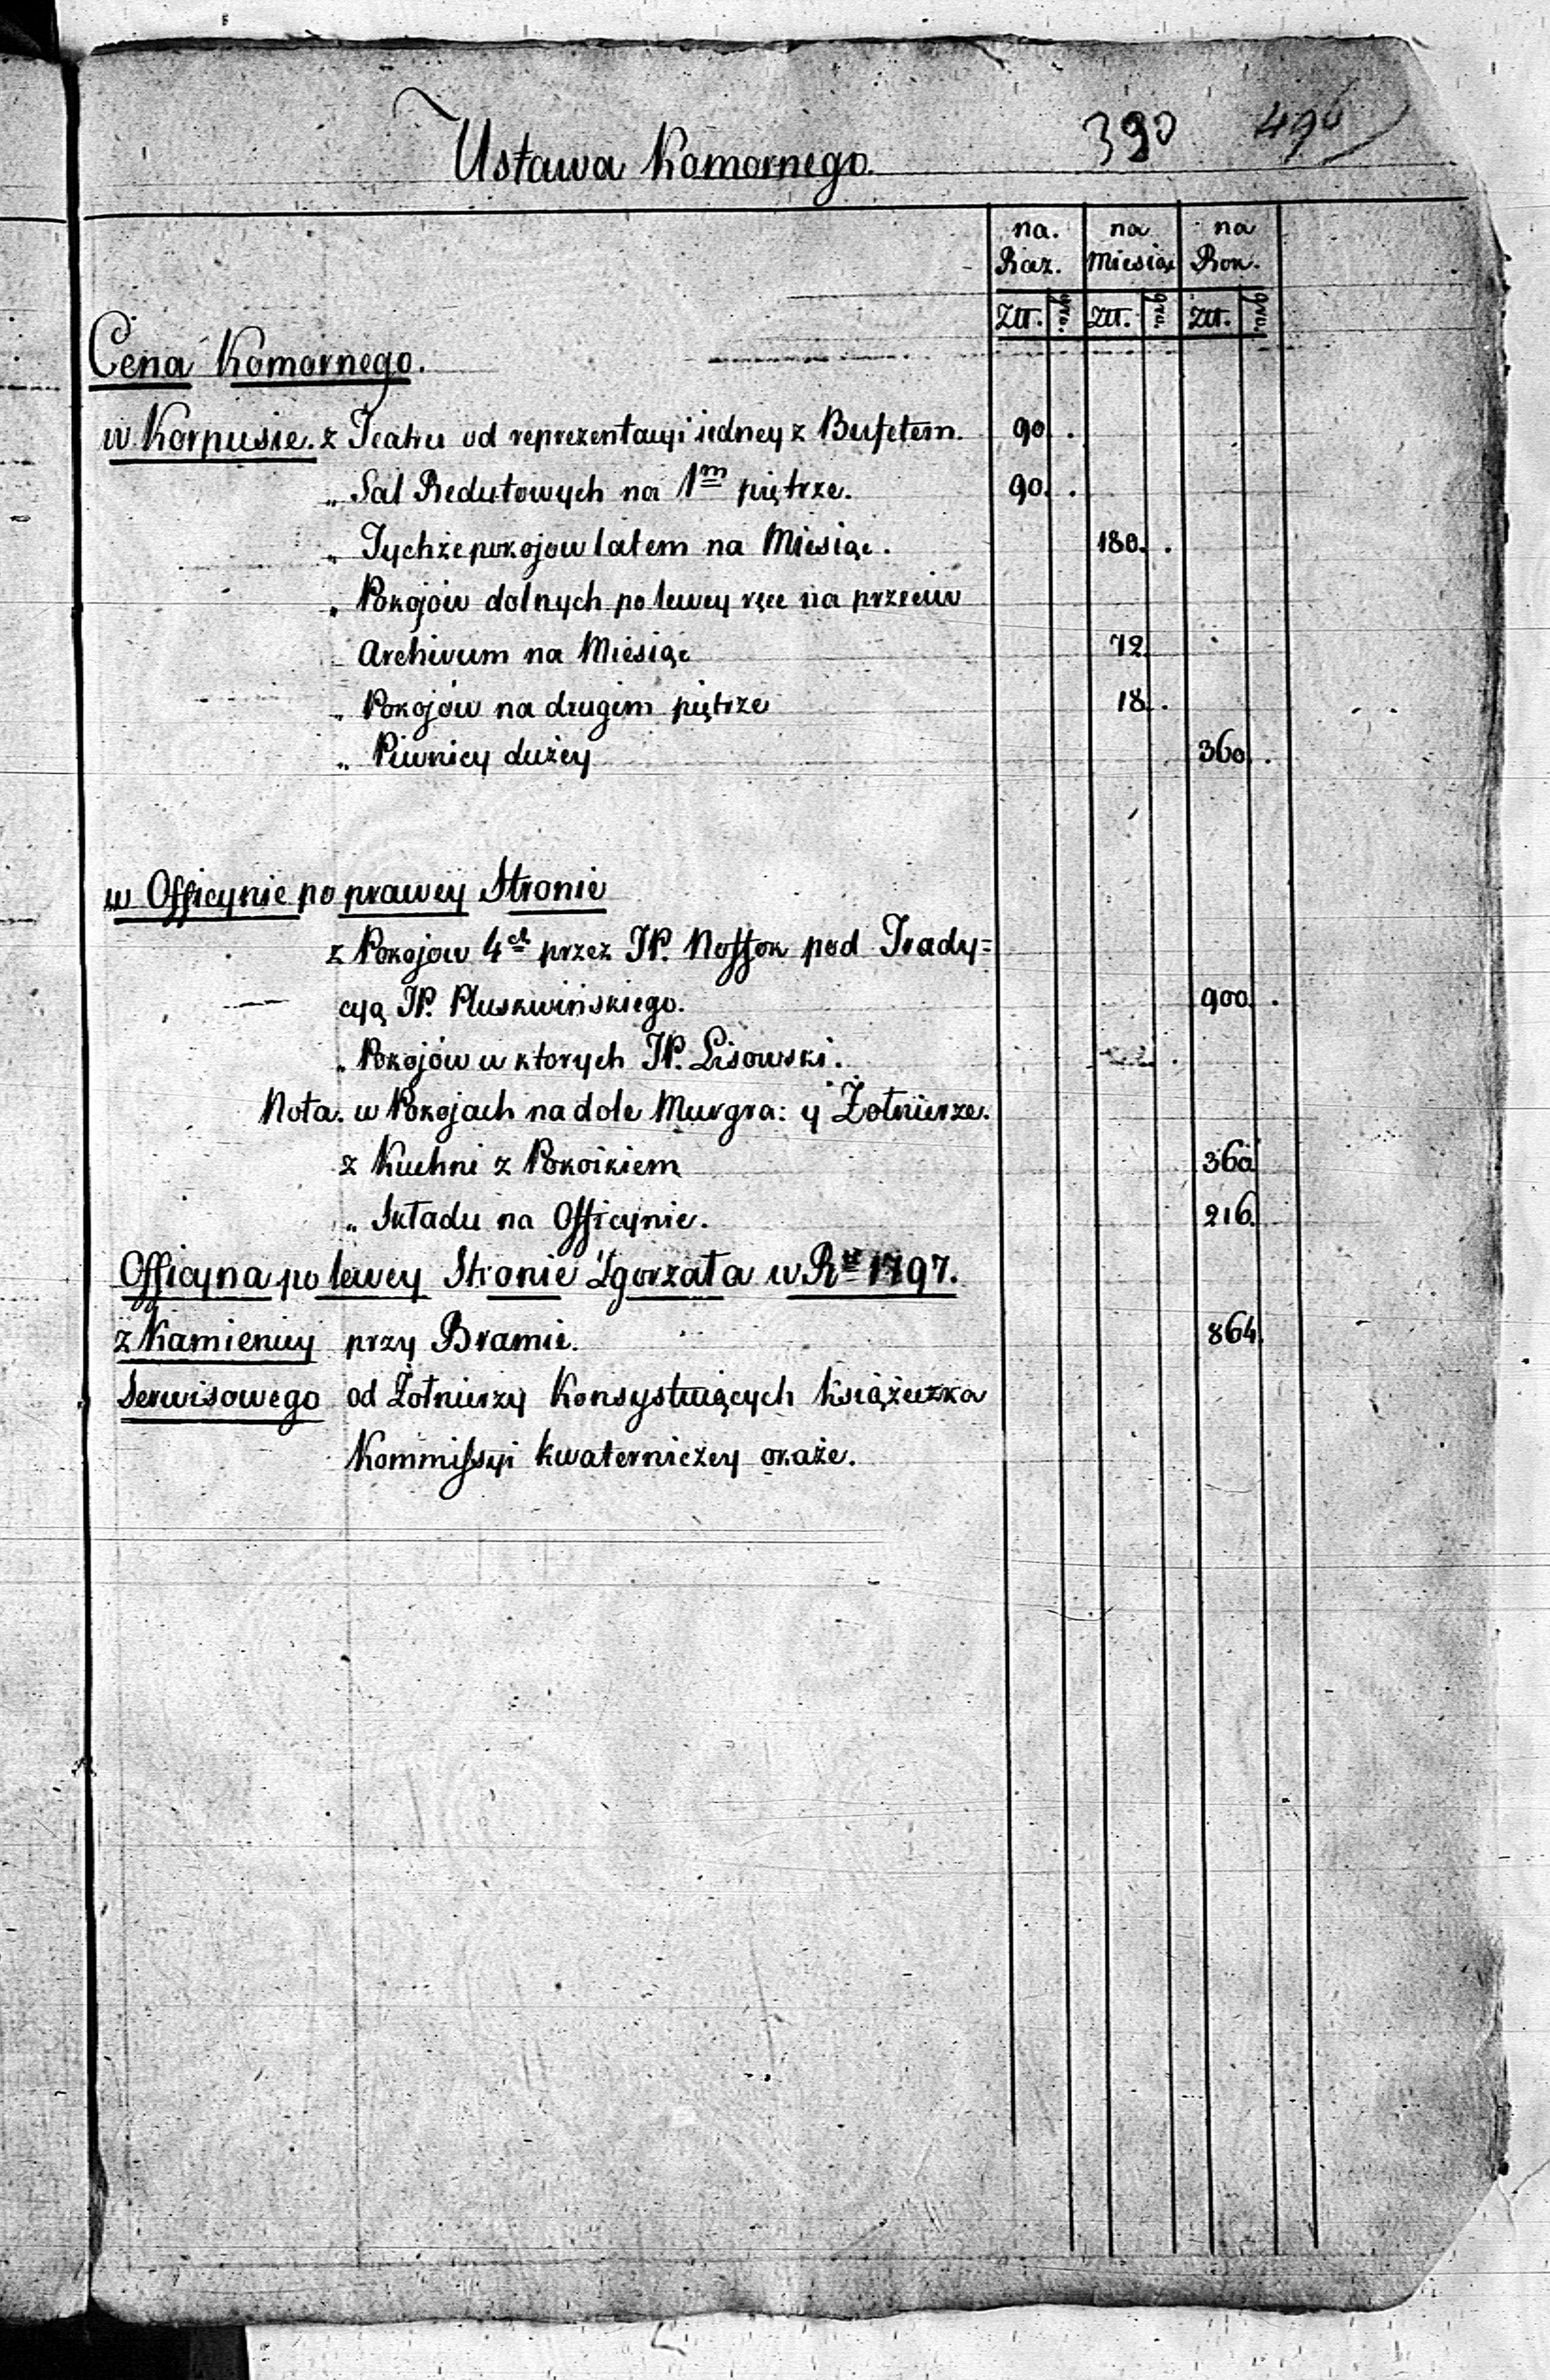 Ustawa Komornego. 390 496
na. na na
Raz. Miesiąc Rok.
Złt. gro. Złt. gro. Złt. gro.
Cena Komornego.
w Korpusie. z Teatru od reprezentacyi iedney z Bufetem. 90 .
„ Sal Redutowych na 1m piętrze. 90. .
„ Tychże pokojow latem na Miesiąc. 180. .
„ Pokojów dolnych po lewey ręce na przeciw
Archivum na Miesiąc 72
„ Pokojów na drugim piętrze 18 .
„ Piwnicy dużey 360 .
w Officynie po prawey Stronie
z Pokojow 4ch przez JP. Nossok pod Trady=
cyą JP. Pluskwińskiego. 900 .
„ Pokojów w ktorych JP. Lisowski.
Nota. w Pokojach na dole Murgra: y Żołnierze.
z Kuchni z Pokoikiem 360
„ Składu na Officynie. 216.
Officyna po lewey Stronie Zgorzała w Ru 1797.
z Kamienicy przy Bramie. 864
Serwisowego od Żołnierzy Konsystuiących Książeczka
Kommissyi kwaterniczey okaże.